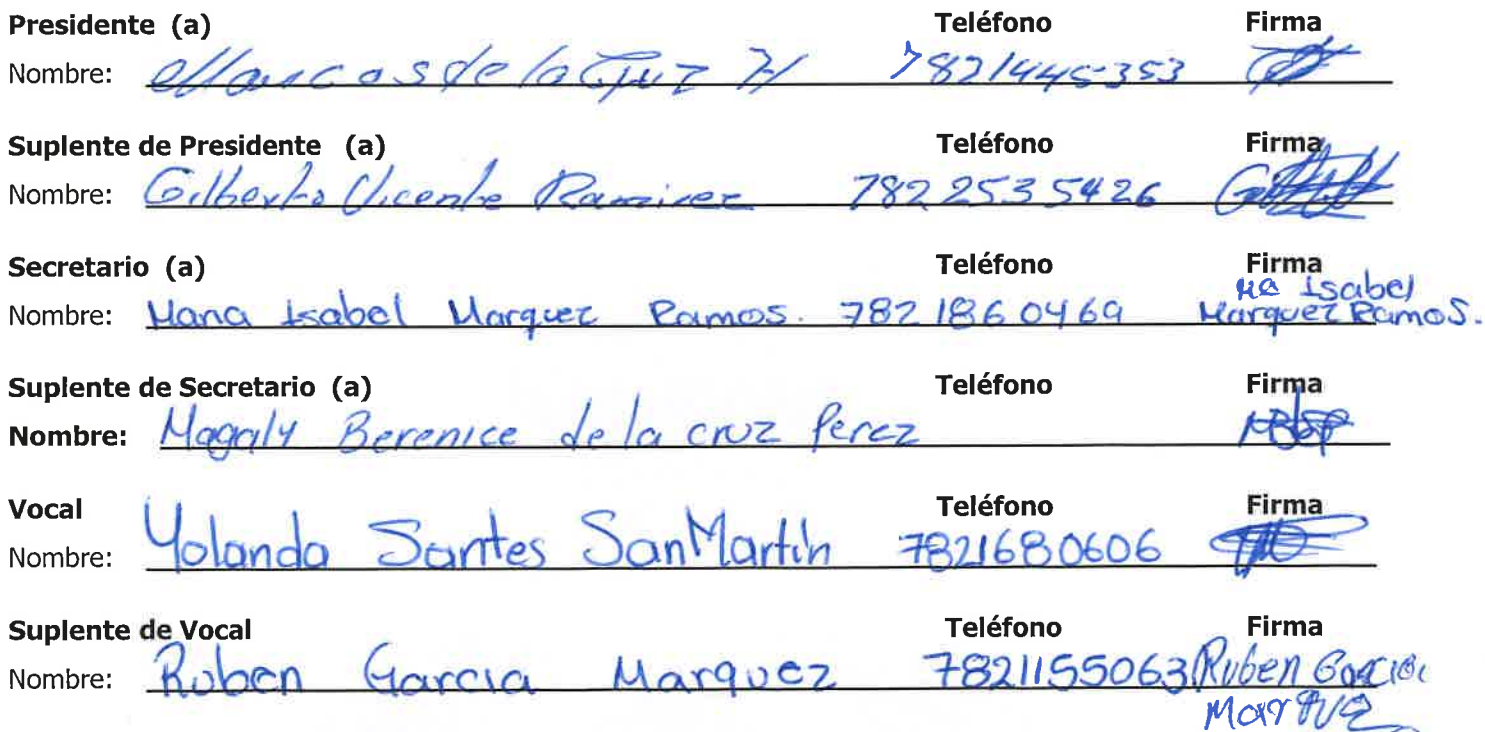 Presidente (a) Teléfono Firma
Nombre: Marcos de la Cruz H 7821445353
Suplente de Presidente (a) Teléfono Firma
Nombre: Gilberto Vicente Ramirez 782 253 5426
Secretario (a) Teléfono Firma
Nombre: Maria Isabel Marquez Ramos. 782 186 0469 Ma Isabel
Marquez Ramos.
Suplente de Secretario (a) Teléfono Firma
Nombre: Magaly Berenice de la cruz Perez
Vocal Teléfono Firma
Nombre: Yolanda Santes SanMartín 7821680606
Suplente de Vocal Teléfono Firma
Nombre: Ruben Garcia Marquez 7821155063 Ruben Garcia